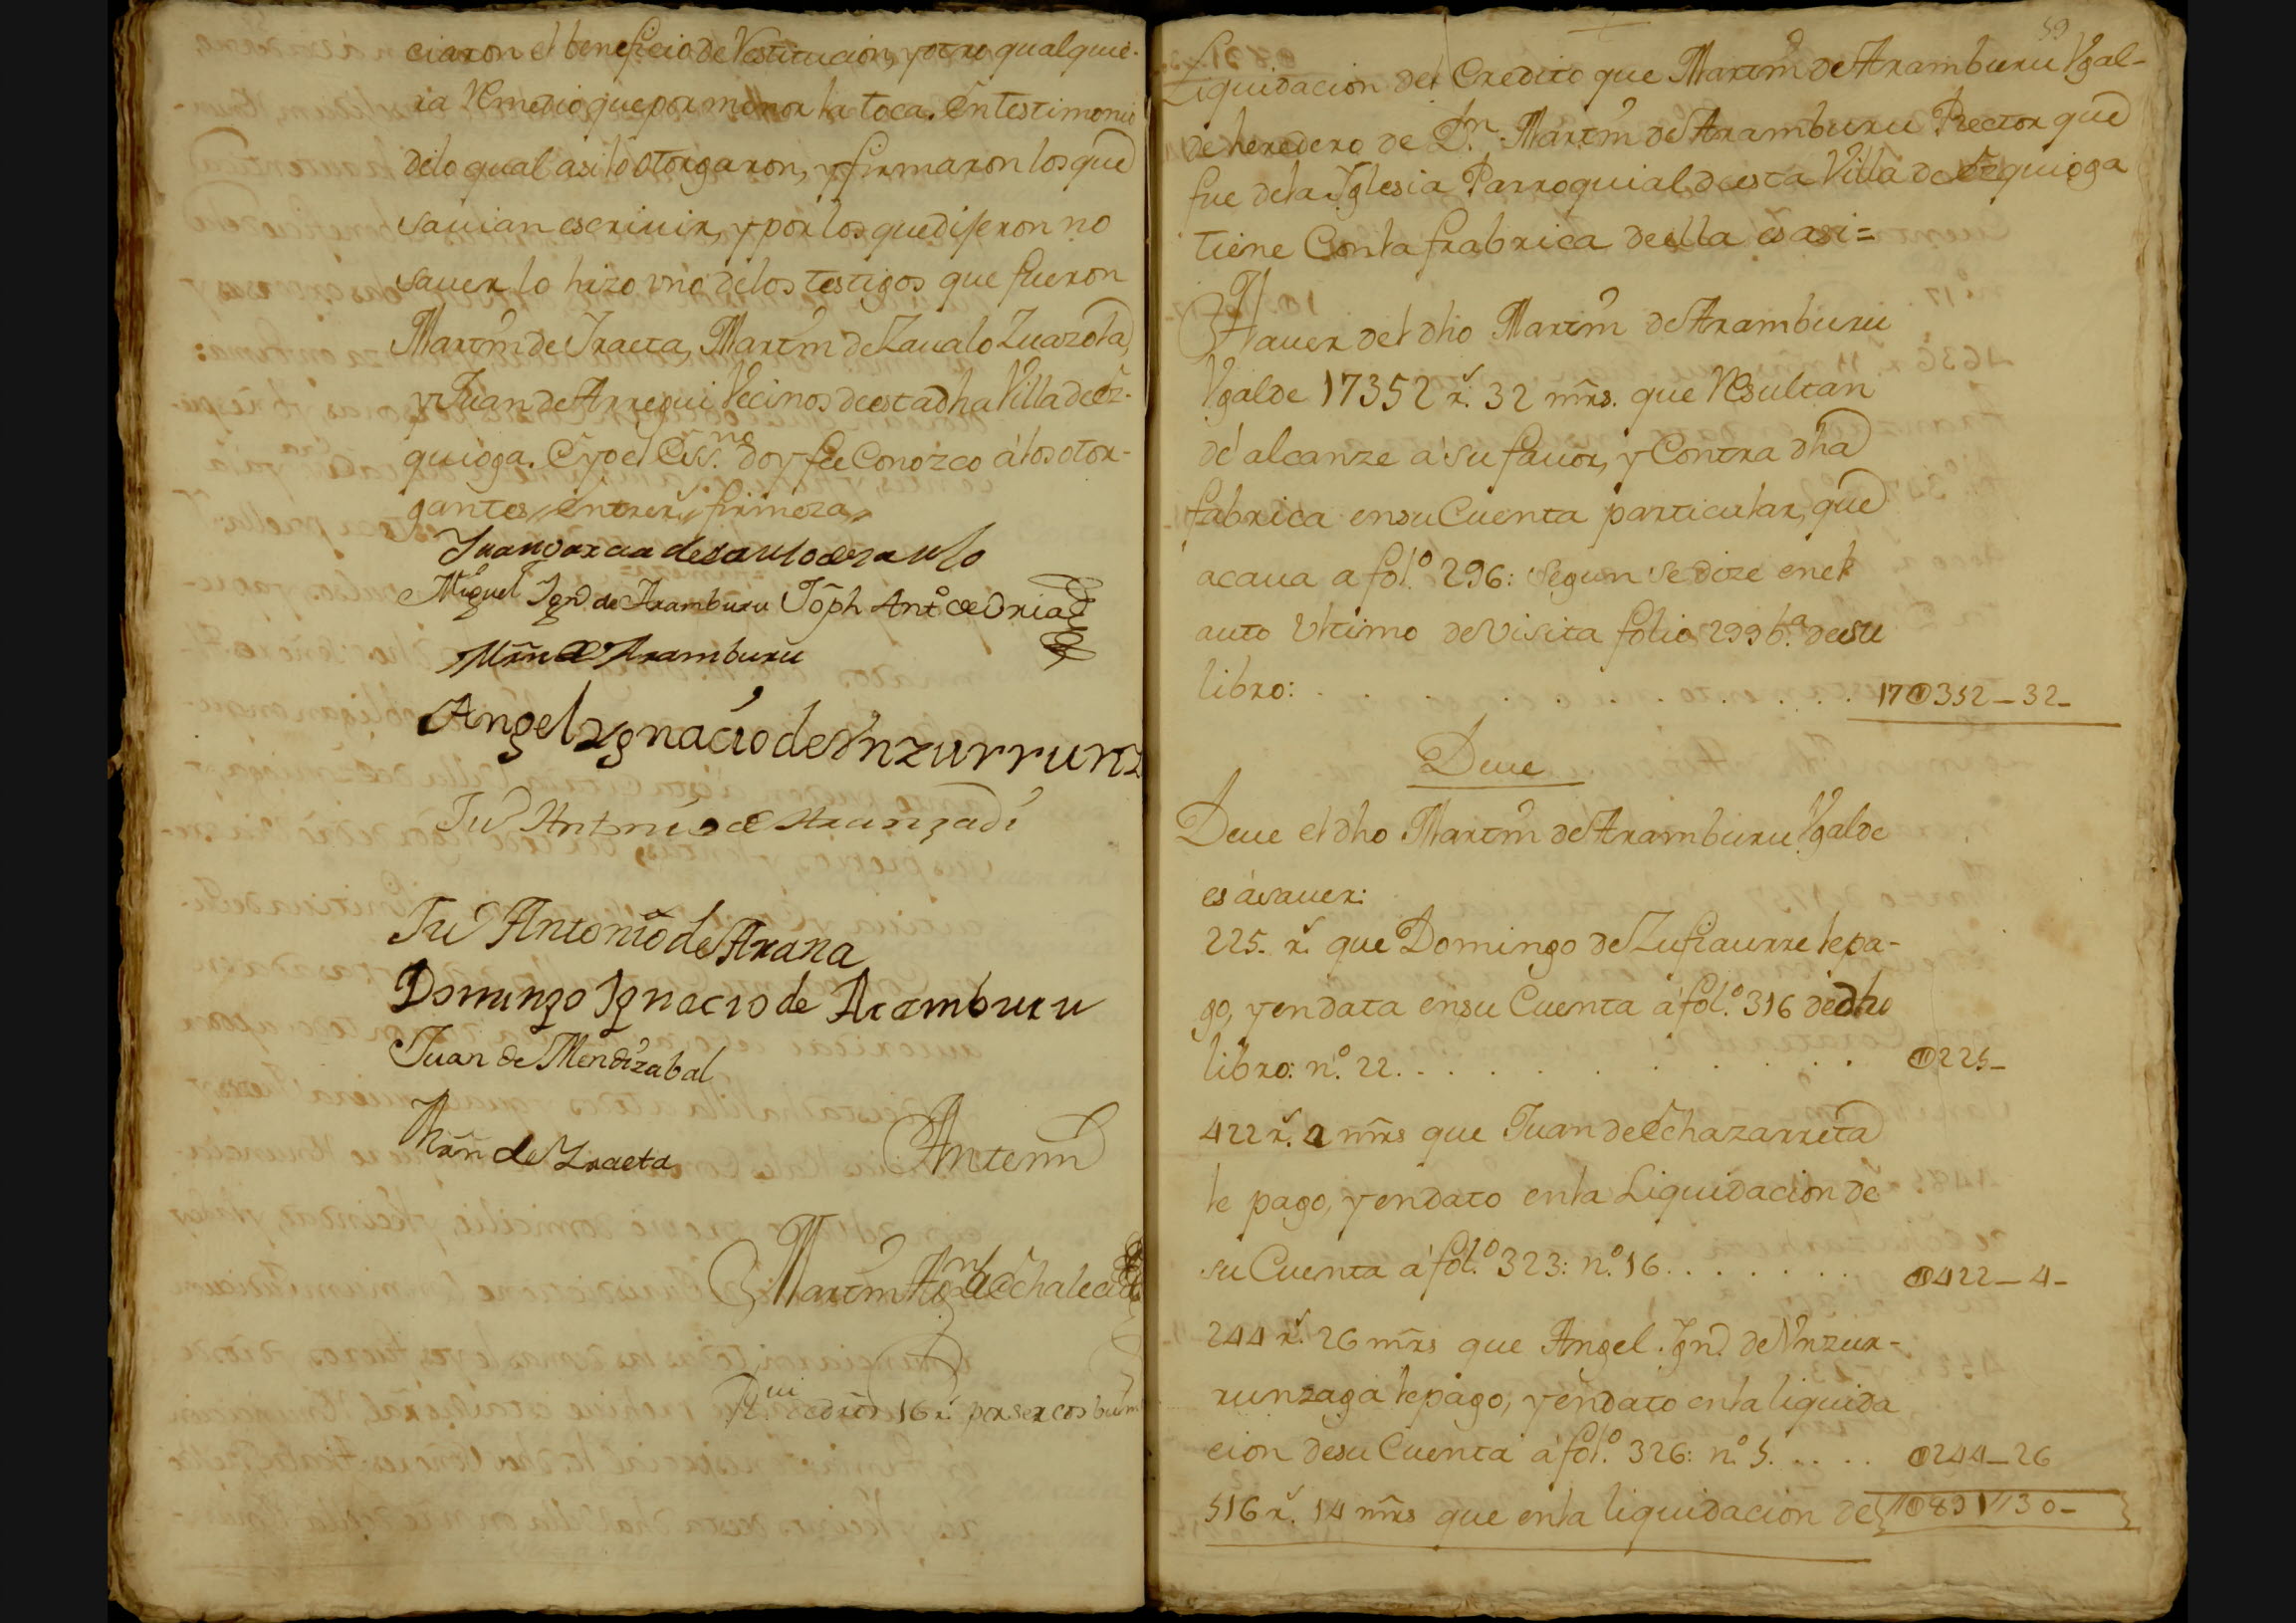 ciaron el beneficio de Restitucion, y otro qualquie-
ra Remedio que por menor la toca. En testimonio
delo qual asi lo otorgaron, y firmaron los que
savian escrivir, y por los que dijeron no
saver lo hizo vno delos testigos que fueron
Martin de Iraeta, Martin de Zavalo Zuazola,
y Juan de Arregui Vecinos de esta dha Villa de Ez-
quioga. E yo el Ess.no doy fee Conozco à los otor-
gantes, entrer.s firmeza,
Juan Garcia
Miguel Ign.o de Aramburu Joph Ant.o de Oria
Mrn de Aramburu
Angel Ygnacio de Vnzurrunz
Ju Antonio de Aranzadi
Ju Antonio de Arana
Domingo Ignacio de Aramburu
Juan de Mendizabal
Mrn de Iraeta Antemi
Martin
16 r.s por ser
59
Liquidacion del Credito que Martin de Aramburu Vgal-
de heredero de D.n Martin de Aramburu Rector que
fue dela Iglesia Parroquial de esta Villa de Ezquioga
tiene Con la frabrica de ella es asi=
Haver del dho Martin de Aramburu
Vgalde 17352 r.s 32 mrs. que Resultan
de alcanze à su favor, y Contra dha
fabrica en su Cuenta particular, que
acava a fol.o 296: segun se dize en el
auto Vltimo de Visita folio 299 b.ta de su
libro: . . . . . . . . . 17U352_32_
Deve
Deve el dho Martin de Aramburu Vgalde
es àsaver:
225. r.s que Domingo de Zufiaurre le pa-
go, y en data en su Cuenta à fol.o 316 de dho
libro: n.o 22. . . . . . . . . U225_
422 r.s 4 mrs que Juan de Echazarreta
le pago, y en dato en la Liquidacion de
su Cuenta à fol.o 323: n.o 16. . . . . . . U422_4_
244 r.s 26 mrs que Angel Ign.o de Vnzur-
runzaga le pago, y en dato en la liquida
cion de su Cuenta à fol.o 326: n.o 5. . . . . U244_26
516 r.s 14 mrs que en la liquidacion de U891"30_